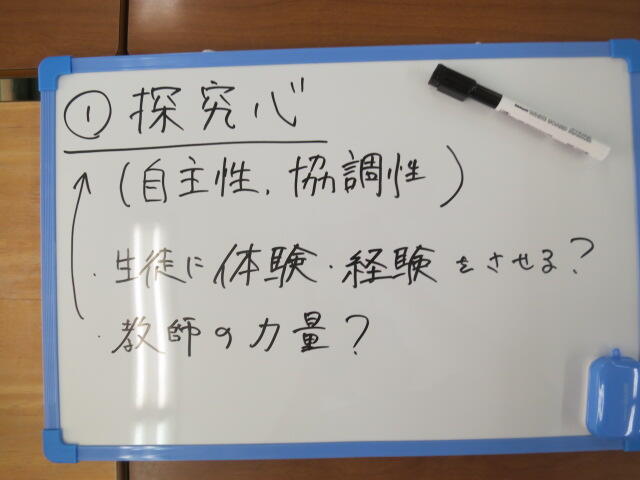 ① 探究心
(自主性, 協調性)
・生徒に体験・経験をさせる?
・教師の力量?